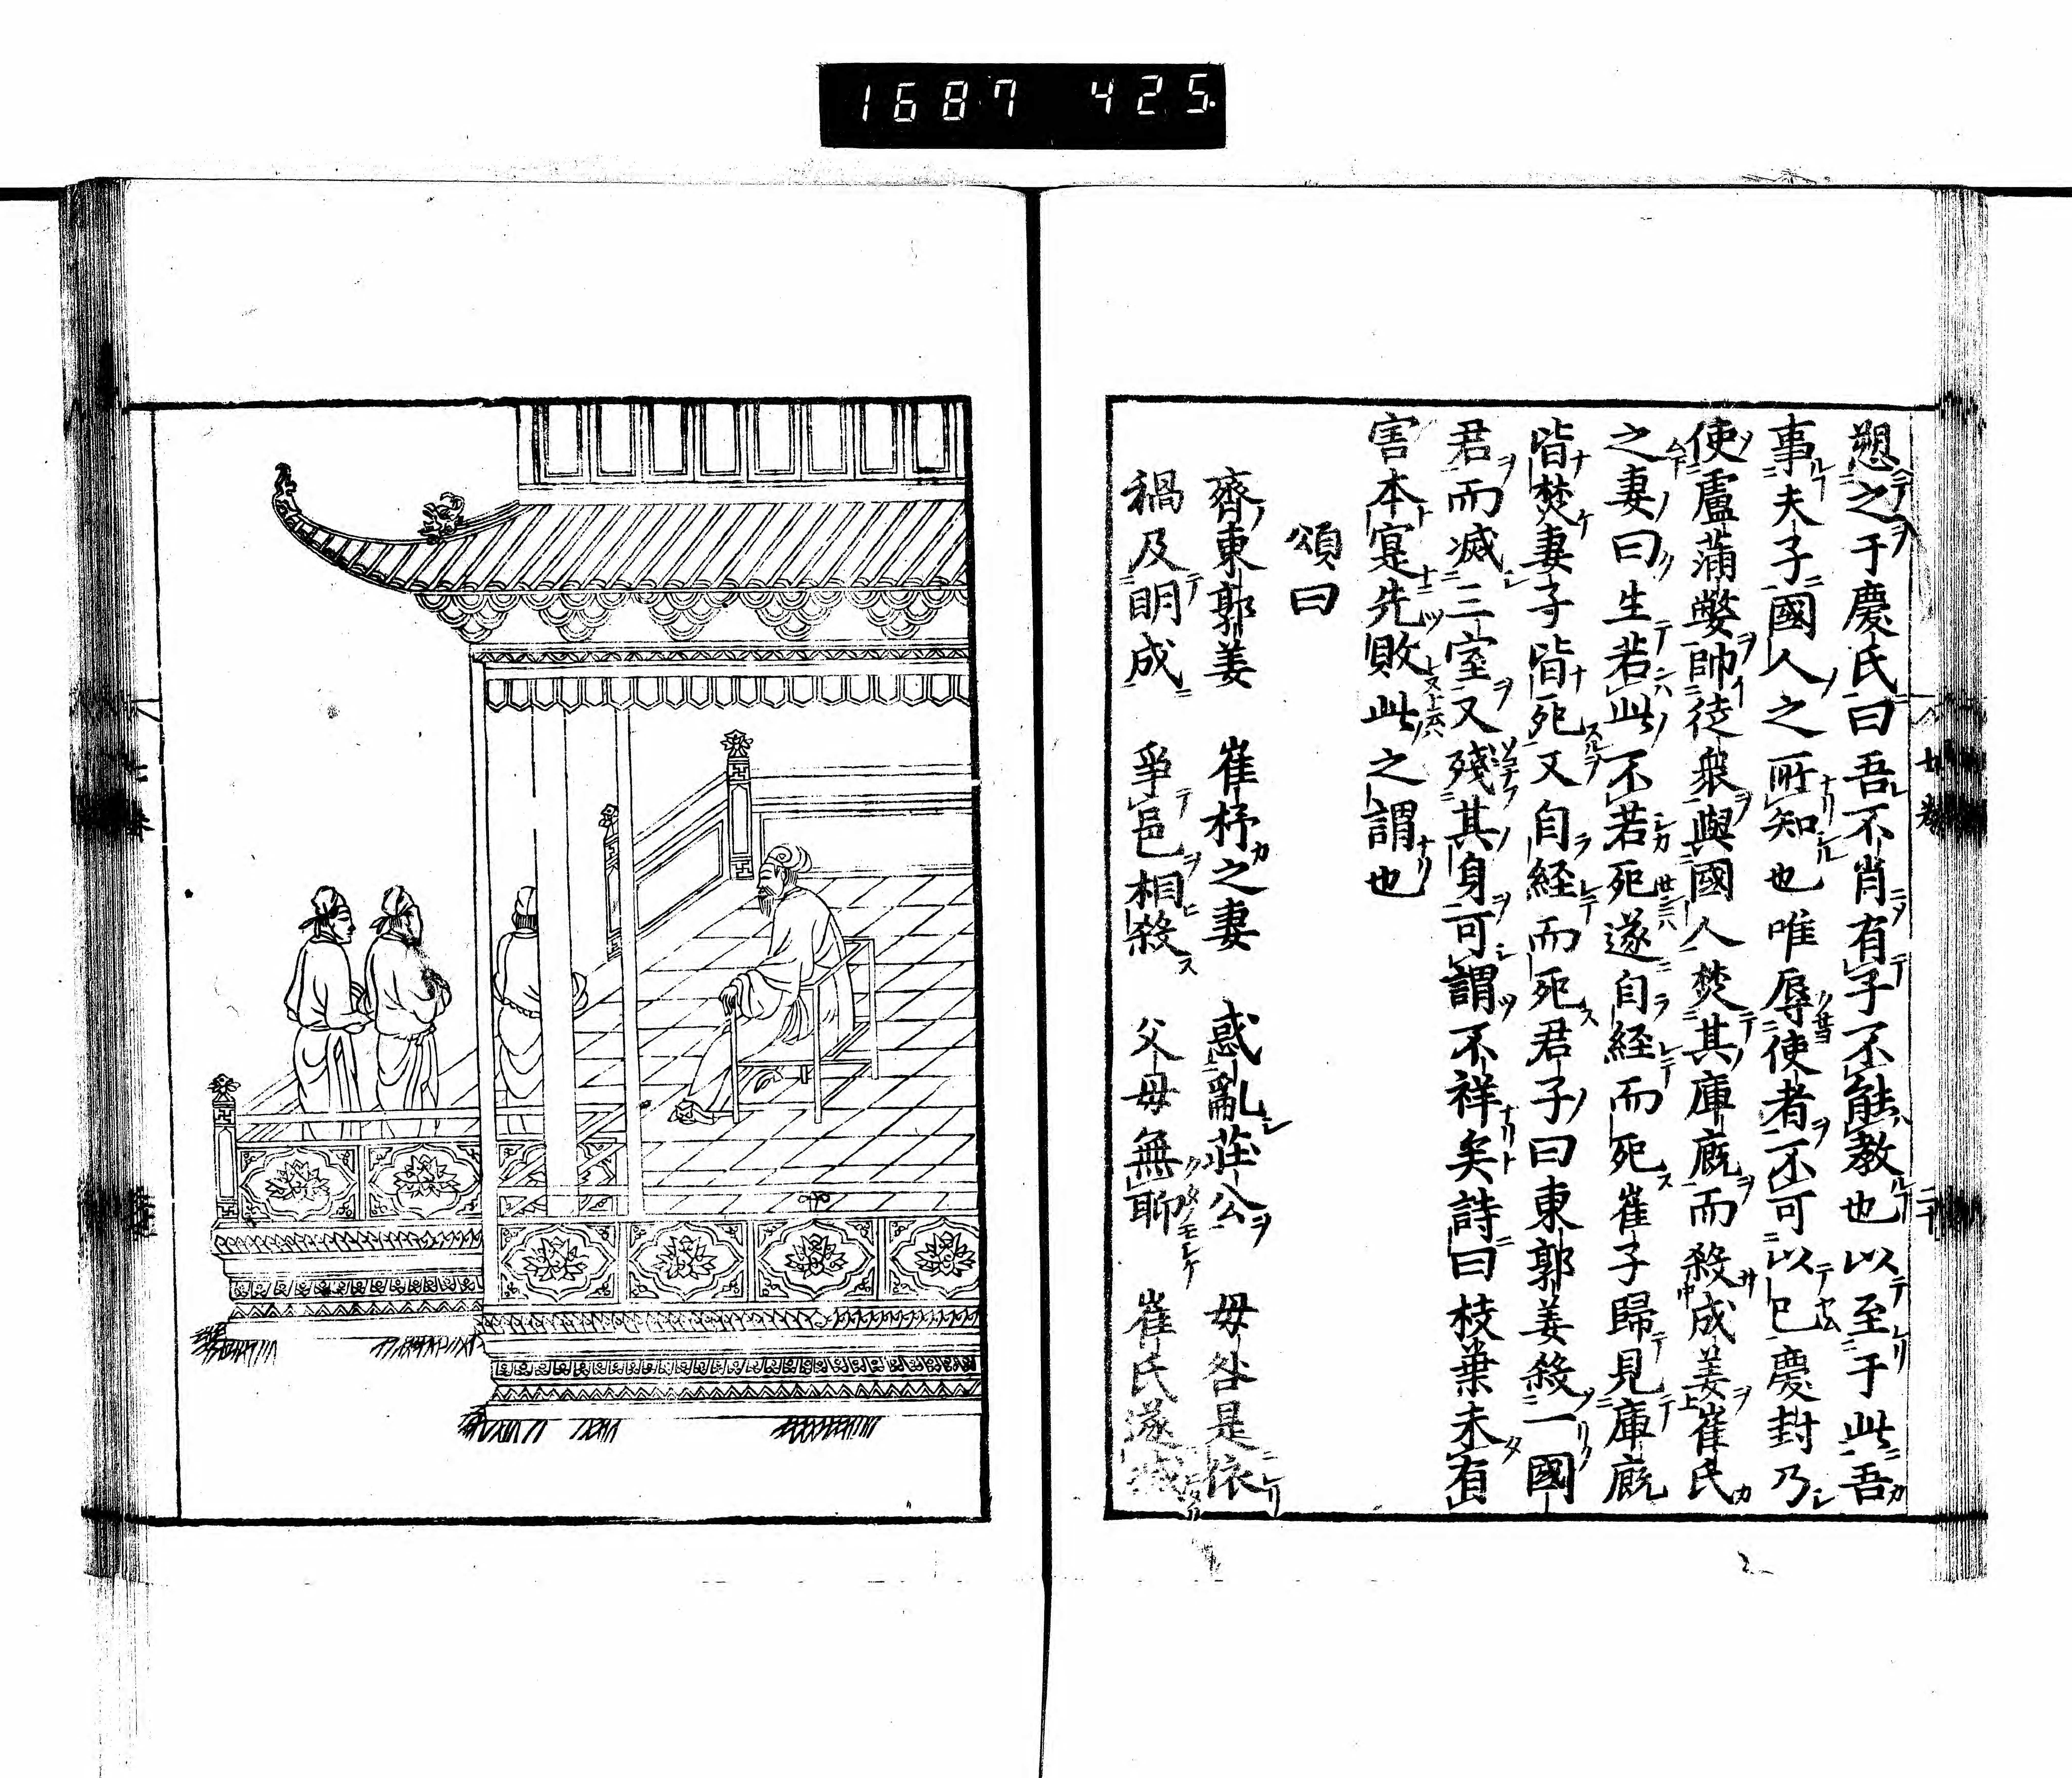 1687 425
愬之于慶氏曰吾不肖有子不能教也以至于此吾
事夫子國人之所知也唯辱使者不可以已慶封乃
使盧蒲嫳帥徒衆與國人焚其庫廐而殺成姜崔氏
之妻曰生若此不若死遂自経而死崔子歸見庫廐
皆焚妻子皆死又自経而死君子曰東郭姜殺一國
君而滅三室又殘其身可謂不祥矣詩曰枝葉未有
害本寔先敗此之謂也
頌曰
齊東郭姜　崔杼之妻　惑亂荘公　毋咎是依
禍及明成　爭邑相殺　父母無聊　崔氏遂滅